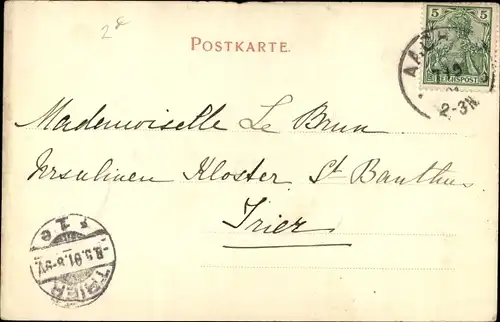 28
POSTKARTE.
5 5
REICHSPOST
2-3N.
Mademoiselle Le Brun
Ursulinen Kloster St Banthus
Trier
TRIER
-8.5.01.8-9V.
1e